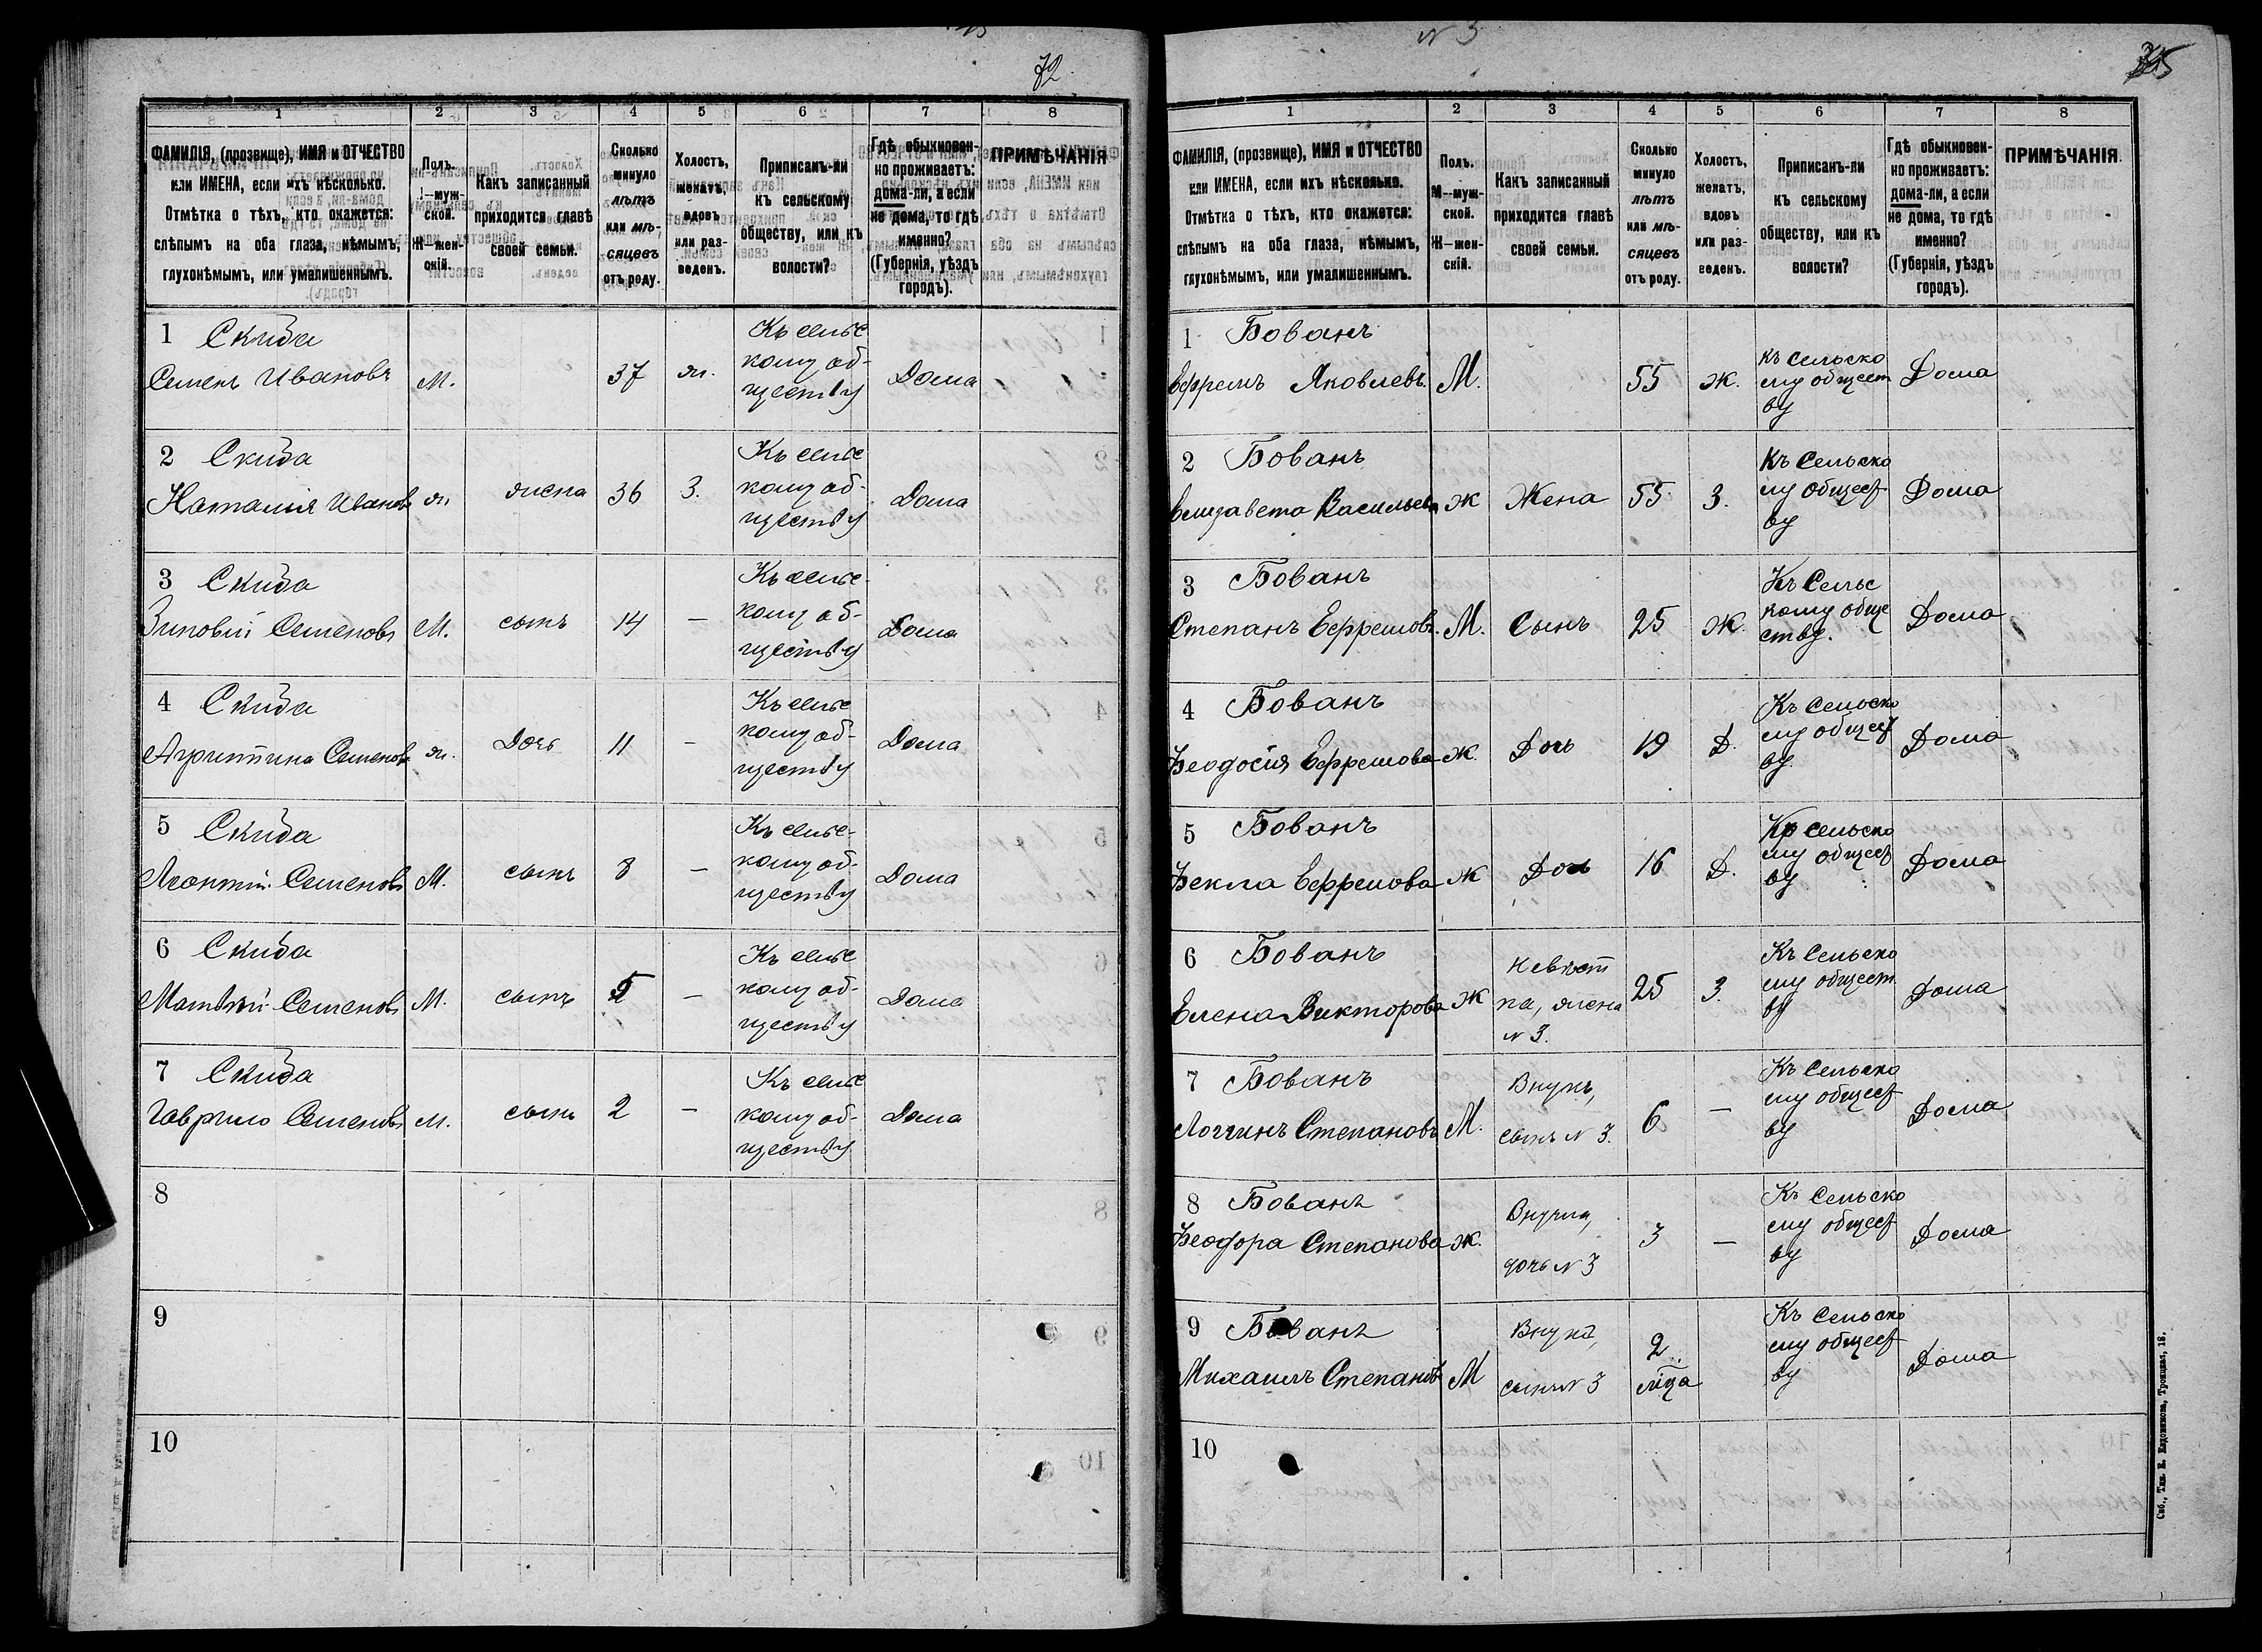 72
1 2 3 4 5 6 7 8
ФАМИЛІЯ, (прозвище), ИМЯ и ОТЧЕСТВО
или ИМЕНА, если ихъ нѣсколько.
Отмѣтка о тѣхъ, кто окажется:
слѣпымъ на оба глаза, нѣмымъ,
глухонѣмымъ, или умалишеннымъ.
Полъ.
М—муж-
ской.
Ж—жен-
скій.
Какъ записанный
приходится главѣ
своей семьи.
Сколько
минуло
лѣтъ
или мѣ-
сяцевъ
отъ роду.
Холостъ,
женатъ,
вдовъ
или раз-
веденъ.
Приписанъ-ли
къ сельскому
обществу, или къ
волости?
Гдѣ обыкновен-
но проживаетъ:
дома-ли, а если
не дома, то гдѣ
именно?
(Губернія, уѣздъ
городъ).
ПРИМѢЧАНІЯ
1 Скиба
Семенъ Ивановъ М. 37 ж. Къ сельс
кому об-
ществу Дома
2 Скиба
Наталія Иванов ж жена 36 З. Къ сельс
кому об-
ществу Дома
3 Скиба
Зиновій Семеновъ М. сынъ 14 — Къ сельс-
кому об-
ществу Дома
4 Скиба
Агрипина Семенов ж. Дочь 11 — Къ сельс
кому об-
ществу Дома
5 Скиба
Леонтій Семеновъ М. сынъ 8 — Къ сельс-
кому об-
ществу Дома
6 Скиба
Матвѣй Семеновъ М. сынъ 5 — Къ сельс
кому об-
ществу Дома
7 Скиба
Гаврило Семеновъ М. сынъ 2 — Къ сельс
кому об-
ществу Дома
8
9
10
N 3
1 2 3 4 5 6 7 8
ФАМИЛІЯ, (прозвище), ИМЯ и ОТЧЕСТВО
или ИМЕНА, если ихъ нѣсколько.
Отмѣтка о тѣхъ, кто окажется:
слѣпымъ на оба глаза, нѣмымъ,
глухонѣмымъ, или умалишеннымъ.
Полъ.
М—муж-
ской.
Ж—жен-
скій.
Какъ записанный
приходится главѣ
своей семьи.
Сколько
минуло
лѣтъ
или мѣ-
сяцевъ
отъ роду.
Холостъ,
женатъ,
вдовъ
или раз-
веденъ.
Приписанъ-ли
къ сельскому
обществу, или къ
волости?
Гдѣ обыкновен-
но проживаетъ:
дома-ли, а если
не дома, то гдѣ
именно?
(Губернія, уѣздъ
городъ).
ПРИМѢЧАНІЯ.
1 Бованъ
Ефремъ Яковлевъ М. 55 ж. къ сельско
му общест
ву Дома
2 Бованъ
Елизавета Васильева ж Жена 55 З. Къ Сельско
му общест
ву Дома
3 Бованъ
Степанъ Ефремовъ М. Сынъ 25 Ж. Къ Сельс
кому обще
ству. Дома
4 Бованъ
Ѳеодосія Ефремова Ж. Дочь 19 Д. Къ Сельско
му общест
ву Дома
5 Бованъ
Ѳекла Ефремова Ж Дочь 16 Д. Къ сельско
му общест
ву Дома
6 Бованъ
Елена Викторова Ж Невѣст
ка, жена
N 3. 25 З. Къ Сельско
му общест
ву Дома
7 Бованъ
Логгинъ Степановъ М. Внукъ,
сынъ N 3. 6 — Къ Сельско
му общест
ву Дома
8 Бованъ
Ѳеодора Степанова Ж. Внучка,
дочь N 3 3 — Къ Сельско
му общест
ву Дома
9 Бованъ
Михаилъ Степановъ М Внукъ,
сынъ N 3 2
м-ца Къ Сельско
му общест
ву Дома
10
Спб., Тип. Е. Евдокимова, Троицкая, 18.